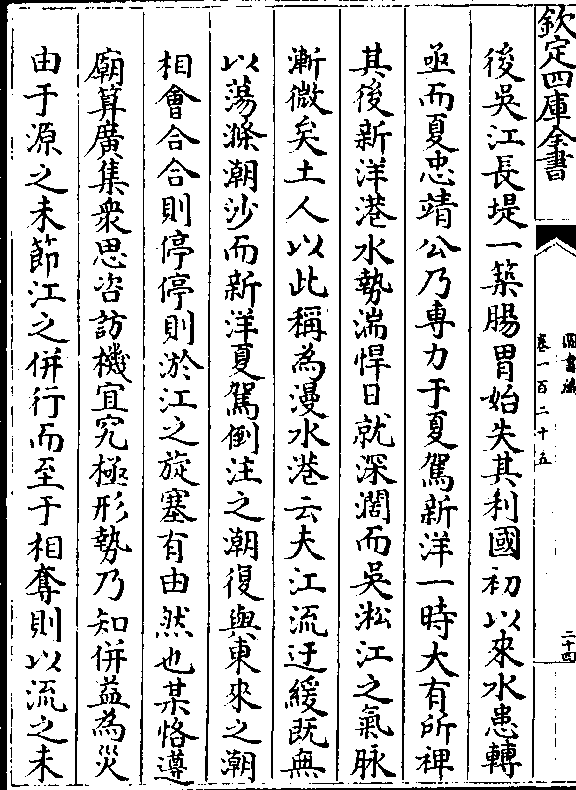 欽定四庫全書
圖書編
卷一百二十五
二十四
後吳江長堤一築腸胃始失其利國初以來水患轉
亟而夏忠靖公乃專力于夏駕新洋一時大有所裨
其後新洋港水勢湍悍日就深濶而吳淞江之氣脉
漸微矣土人以此稱為漫水港云夫江流迂緩既無
以蕩滌潮沙而新洋夏駕倒注之潮復與東來之潮
相會合合則停停則淤江之旋塞有由然也某恪遵
廟算廣集衆思咨訪機宜究極形勢乃知併益為災
由于源之未節江之併行而至于相奪則以流之未